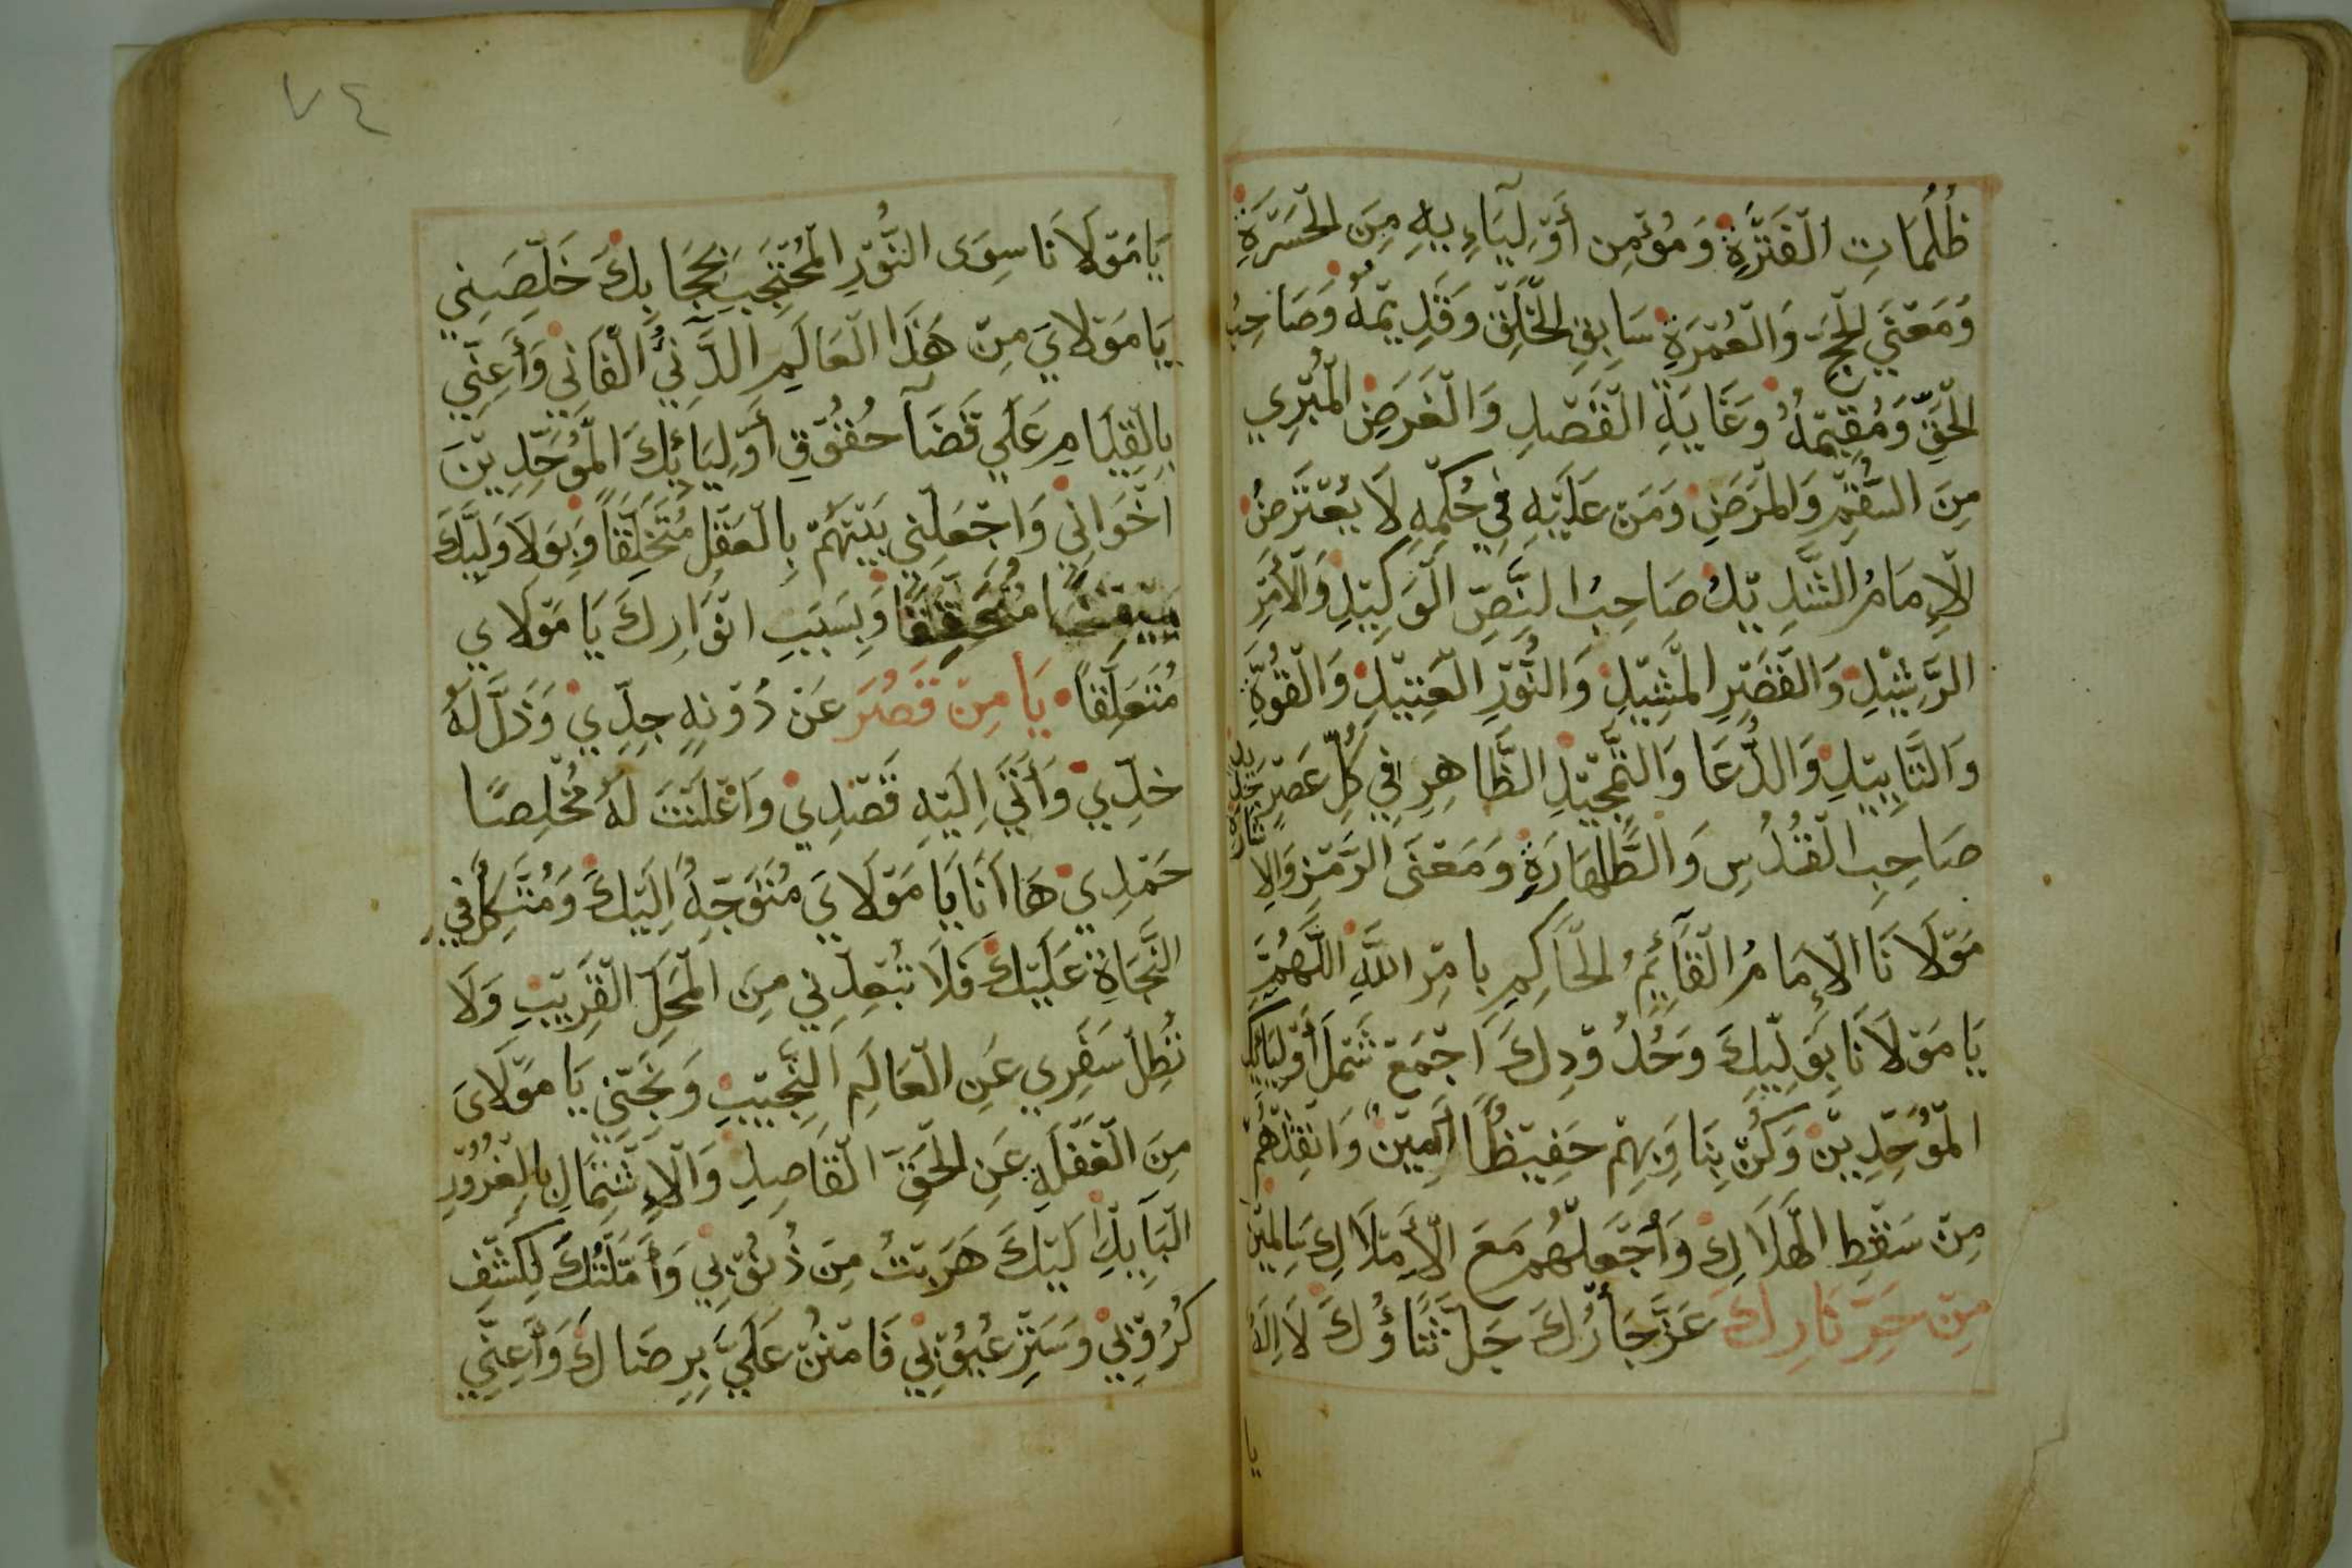 ظُلُمَاتِ الْفَتْرَةِ وَمُؤْمِنِ أَوْلِيَآءِيهِ مِنَ الْحَسْرَةِ
وَمَعْنَي الْحَجِّ وَالْعُمْرَةِ سَابِقِ الْخَلْقِ وَقَدِيمُهُ وَصَاحِبُ
الْحَقِّ وَمُقِيمُهُ وَغَايَةِ الْقَصْدِ وَالْغَرَضِ الْمُبْرِي
مِنَ السُّقْمِ وَالْمَرَضِ وَمَنْ عَلَيْهِ فِي حُكْمِهِ لَا يُعْتَرَضُ
الْإِمَامُ الشَّدِيْدُ صَاحِبُ النَّصِّ الْوَكِيْدِ وَالْأَمْرِ
الرَّشِيْدِ وَالْقَصْرِ الْمَشِيْدِ وَالنُّوْرِ الْعَتِيْدِ وَالْقُوَّةِ
وَالتَّايِيْدِ وَالدُّعَا وَالتَّمْجِيْدِ الظَّاهِرِ فِي كُلِّ عَصْرٍ جَدِيد
صَاحِبِ الْقُدْسِ وَالطَّهَارَةِ وَمَعْنَى الرَّمْزِ وَالاِشَارَةِ
مَوْلَانَا الْإِمَامُ الْقَآئِمُ الْحَاكِمِ بِامْرِ اللَّهِ اللَّهُمَّ
يَا مَوْلَانَا بِوَلِيِّكَ وَحُدُوْدِكَ اجْمَعْ شَمْلَ أَوْلِيَائِكَ
الْمُوَحِّدِيْنَ وَكُنْ بِنَا وَبِهِمْ حَفِيْظًا اَمِيْنٌ وَانْقِذْهُمْ
مِنْ سَقْطِ الْهَلَاكِ وَأجْعَلْهُمْ مَعَ الْأَمْلَاكِ سَالِمِيْنَ
مِنْ حَرِّ نَارِكَ عَزَّ جَارُكَ جَلَّ ثَنَاؤُكَ لَا اِلَهَ
يا
٧٤
يَا مَوْلَانَا سِوَى النُّوْرِ الْمُحْتَجِبَ بِحِجَابِكَ خَلِّصْنِي
يَا مَوْلَايَ مِنْ هَذَا الْعَالَمِ الدَّنِيِّ الْفَانِي وَأَعِنِّي
بِالْقِيَامِ عَلَي قَضَآ حُقُوْقِ أَوْلِيَائِكَ الْمُوَحِّدِيْنَ
اخْوَانِي وَاجْعَلْنِي بَيْنَهُمْ بِالْعَقْلِ مُتَخَلِّقًا وَبِوَلَا وَلِيِّكَ
مُتَحَقِّقًا وَبِسَبَبِ انْوَارِكَ يَا مَوْلَاي
مُتَعَلِّقًا يَا مِنْ قَصُرَ عَنْ دُوْنِهِ جِدِّي وَذَلَّ لَهُ
خَدِّي وَأَنَّي اِلَيْهِ قَصْدِي وَاعْلَنْتَ لَهُ مُخْلِصًا
حَمْدِي هَا اَنَا يَا مَوْلَايَ مُتَوَجِّهٌ اِلَيْكَ وَمُتَّكِلٌ فِي
النَّجَاةِ عَلَيْكَ فَلَا تُبْعِدْنِي مِنَ الْمَحَلِّ الْقَرِيْبِ وَلَا
تُطِلْ سَفَرِي عَنِ الْعَالَمِ النَّجِيْبِ وَنَجِّنِي يَا مَوْلَاىَ
مِنَ الْغَفْلَةِ عَنِ الْحَقِّ الْقَاصِدِ وَالْإِشْتِمَالِ بِالْغُرُوْرِ
الْبَآيِدِ اِلَيْكَ هَرَبْتُ مِنَ ذُنُوْبِي وَأَمَّلْتُكَ لِكَشْفِ
كُرُوْبِي وَسَتْرِ عُيُوْبِي فَامْنُنْ عَلَيَّ بِرِضَاكَ وَأَعِنِّي